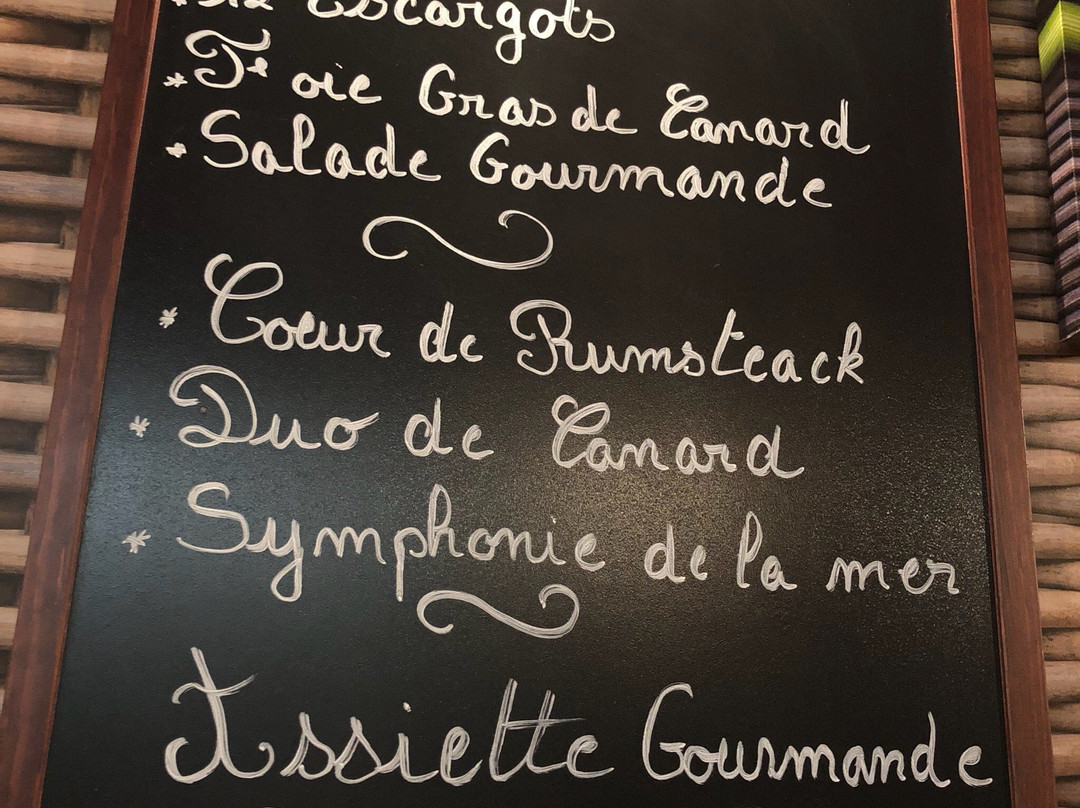 * Six Escargots
* Foie Gras de Canard
* Salade Gourmande
* Coeur de Rumsteack
* Duo de Canard
* Symphonie de la mer
Assiette Gourmande